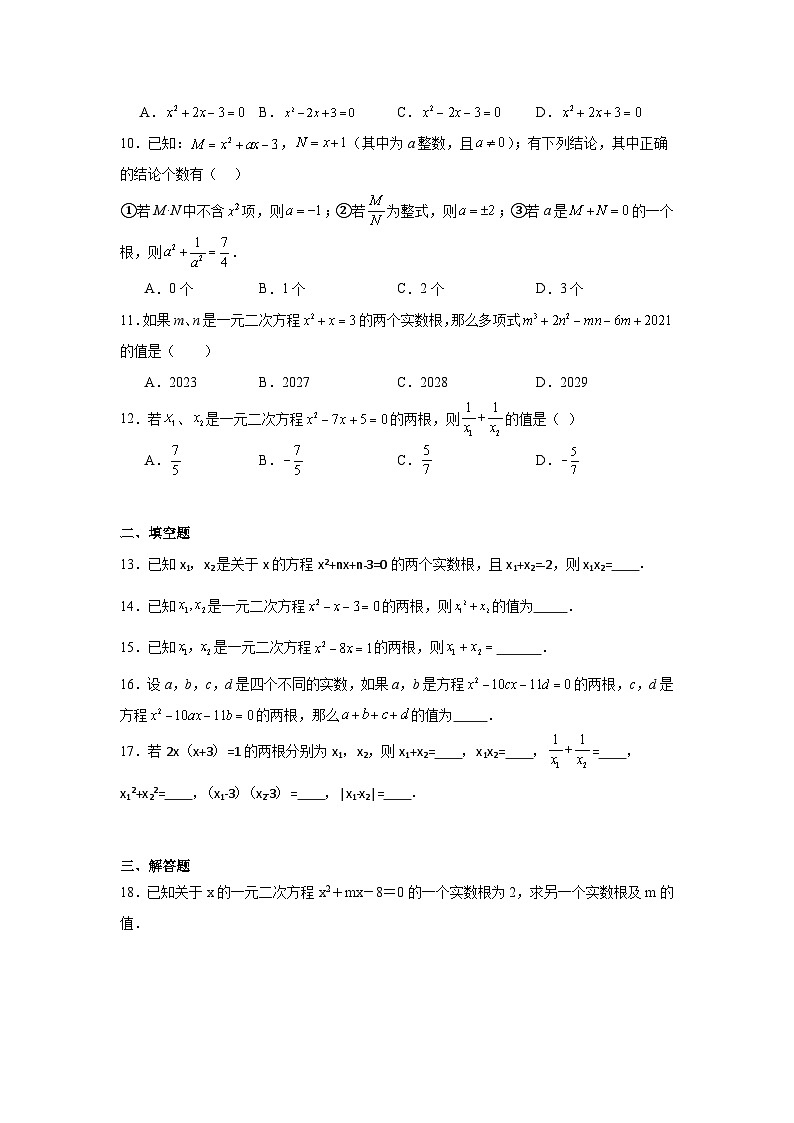 A．x²+2x−3=0 B．x²−2x+3=0 C．x²−2x−3=0 D．x²+2x+3=0
10．已知：M=x²+ax−3，N=x+1（其中为a整数，且a≠0）；有下列结论，其中正确
的结论个数有（ ）
①若M·N中不含x²项，则a=−1；②若M/N为整式，则a=±2；③若a是M+N=0的一个
根，则a²+1/a²=7/4．
A．0个 B．1个 C．2个 D．3个
11．如果m、n是一元二次方程x²+x=3的两个实数根，那么多项式m³+2n²−mn−6m+2021
的值是（ ）
A．2023 B．2027 C．2028 D．2029
12．若x₁、x₂是一元二次方程x²−7x+5=0的两根，则1/x₁+1/x₂的值是（ ）
A．7/5 B．−7/5 C．5/7 D．−5/7
二、填空题
13．已知x₁，x₂是关于x的方程x²+nx+n-3=0的两个实数根，且x₁+x₂=-2，则x₁x₂=____．
14．已知x₁,x₂是一元二次方程x²−x−3=0的两根，则x₁²+x₂的值为_____．
15．已知x₁，x₂是一元二次方程x²−8x=1的两根，则x₁+x₂=_______．
16．设a，b，c，d是四个不同的实数，如果a，b是方程x²−10cx−11d=0的两根，c，d是
方程x²−10ax−11b=0的两根，那么a+b+c+d的值为_____．
17．若2x（x+3）=1的两根分别为x₁，x₂，则x₁+x₂=____，x₁x₂=____，1/x₁+1/x₂=____，
x₁²+x₂²=____，（x₁-3）（x₂-3）=____，|x₁-x₂|=____．
三、解答题
18．已知关于x的一元二次方程x²＋mx－8＝0的一个实数根为2，求另一个实数根及m的
值．